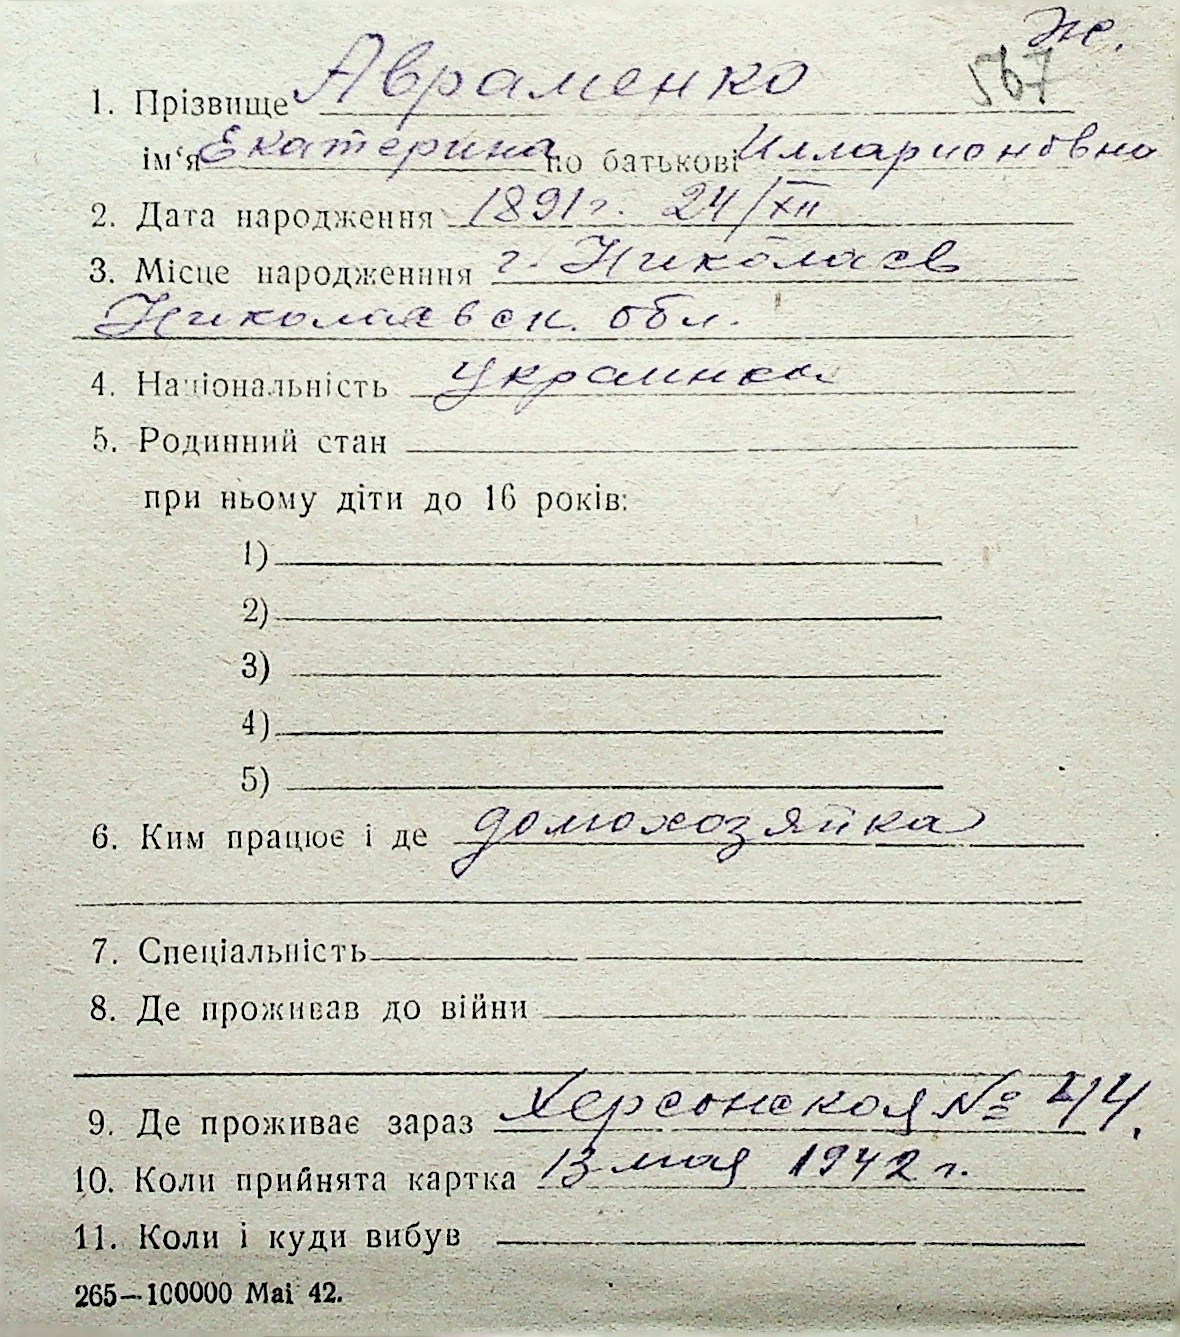 Же.
567
1. Прізвище Авраменко
ім‘я Екатерина по батькові Илларионовна
2. Дата народження 1891 г. 24/XII
3. Місце народженння г. Николаев
Николаевск. обл.
4. Національність украинка
5. Родинний стан
при ньому діти до 16 років:
1)
2)
3)
4)
5)
6. Ким працює і де домохозяйка
7. Спеціальність
8. Де проживав до війни
9. Де проживає зараз Херсонская № 44.
10. Коли прийнята картка 13 мая 1942 г.
11. Коли і куди вибув
265—100000 Mai 42.